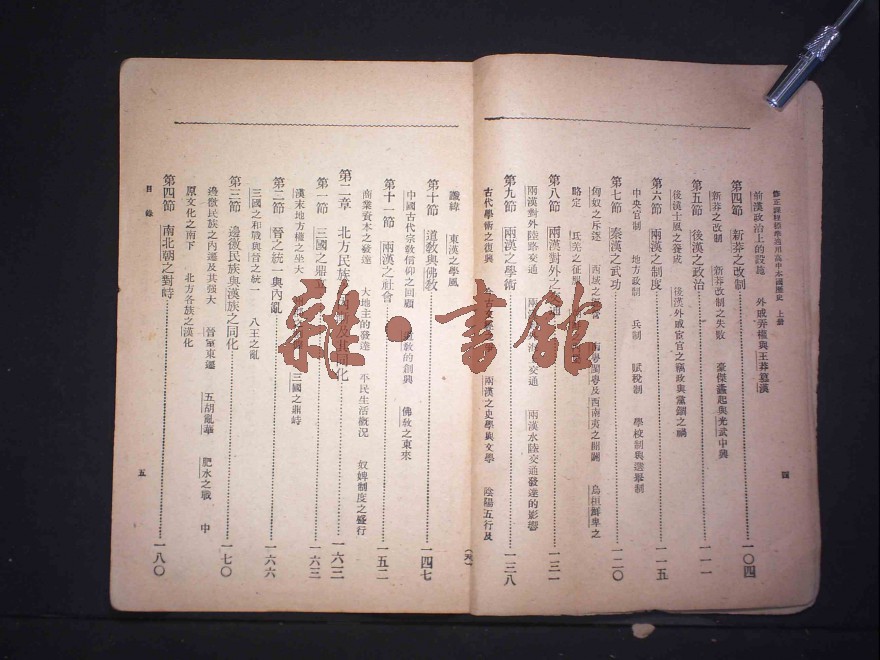 修正課程標準適用高中本國歷史 上册
四
前漢政治上的設施 外戚弄權與王莽篡漢
第四節 新莽之改制 一〇四
新莽之改制 新莽改制之失敗 豪傑蠭起與光武中興
第五節 後漢之政治 一一一
後漢士風之養成 後漢外戚宦官之竊政與黨錮之禍
第六節 兩漢之制度 一一五
中央官制 地方政制 兵制 賦稅制 學校制與選舉制
第七節 秦漢之武功 一二〇
匈奴之斥逐 西域之 南粵閩粵及西南夷之開闢 烏桓鮮卑之
略定 氐羌之征服
第八節 兩漢對外之交通 一三一
兩漢對外陸路交通 兩漢 交通 兩漢水陸交通發達的影響
第九節 兩漢之學術 一三八
古代學術之復興 兩漢之史學與文學 陰陽五行及
(天)
讖緯 東漢之學風
第十節 道教與佛教 一四七
中國古代宗教信仰之回顧 道教的創興 佛教之東來
第十一節 兩漢之社會 一五二
商業資本之發達 大地主的發達 平民生活概況 奴婢制度之盛行
第二章 北方民族之內遷及其同化 一六三
第一節 三國之鼎立 一六三
漢末地方權之坐大 三國之鼎峙
第二節 晉之統一與內亂 一六六
三國之和戰與晉之統一 八王之亂
第三節 邊徼民族與漢族之同化 一七〇
邊徼民族之內遷及其強大 晉室東遷 五胡亂華 肥水之戰 中
原文化之南下 北方各族之漢化
第四節 南北朝之對峙 一八〇
目錄
五
雜·書館